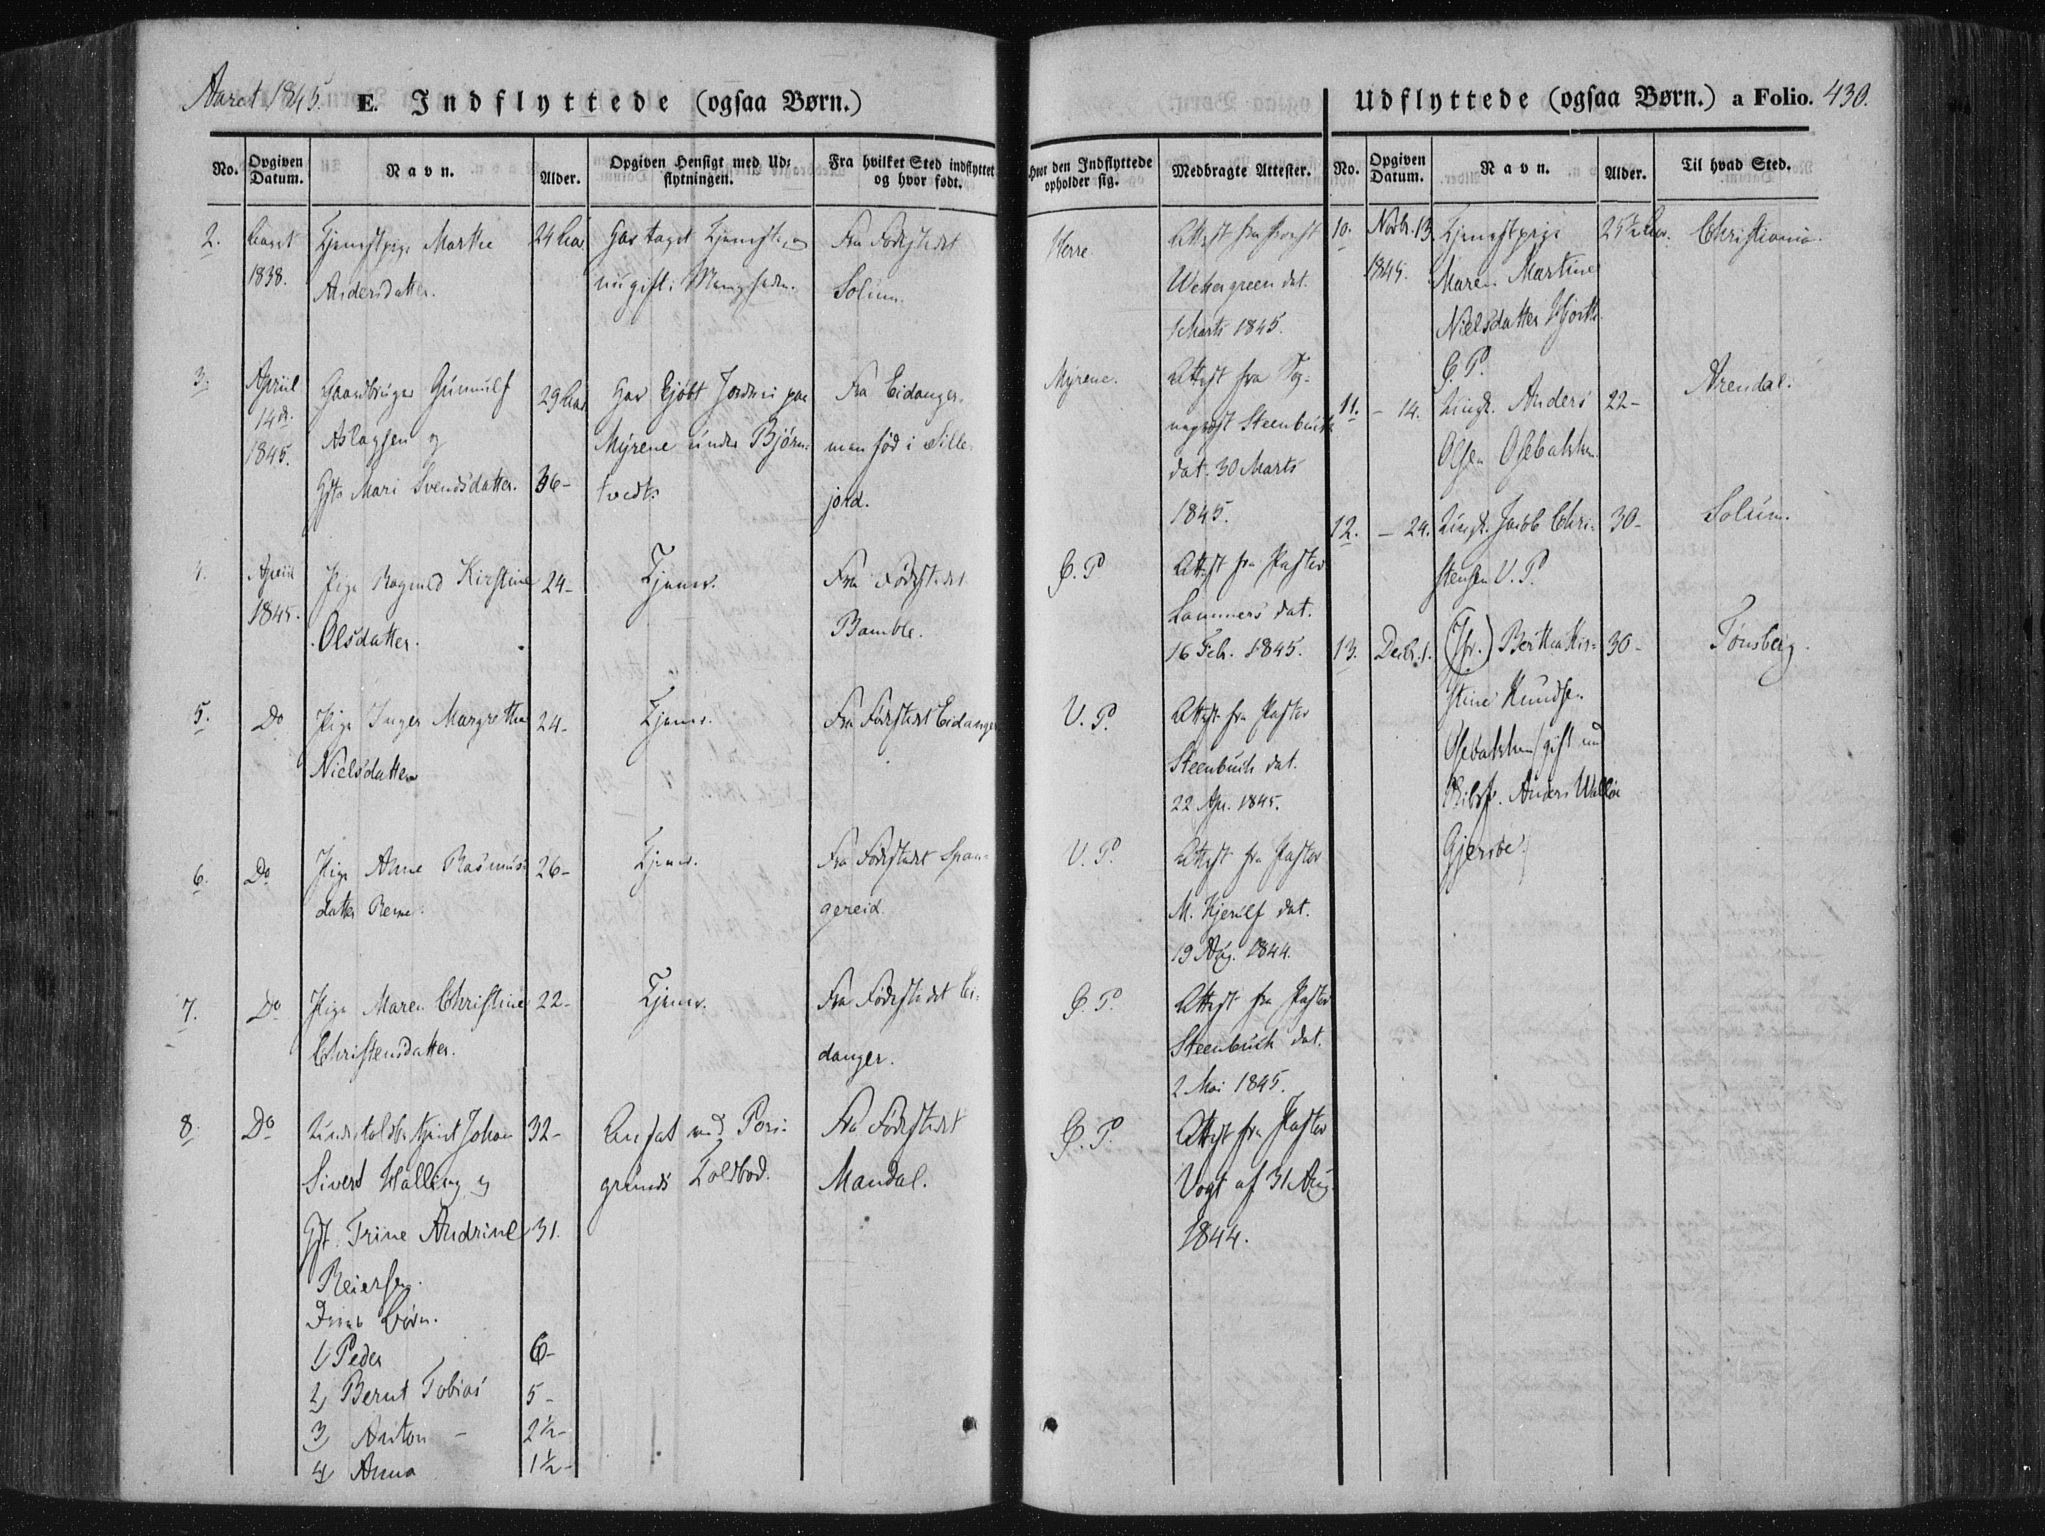 Aaret 1845. E. Indflyttede (ogsaa Børn.)
No.
Opgiven Datum.
Navn.
Alder.
Opgiven Hensigt med Udflytningen.
Fra hvilket Sted indflyttet og hvor født.
Hvor den Indflyttede opholder sig.
Medbragte Attester.
2. 1838. Tjenestpige Marthe 24 Aar Har taget Tjeneste, er Fra Fødestedet Herre. Attest fra Provst
Andersdatter. nu gift i Menigheden. Solum. Wettergreen dat.
1 Marts 1845.
3. April Gaardbruger Gunnulf 29 Aar Har kjøbt Jordvei paa Fra Eidanger, Myrene. Attest fra Sog-
14de Aslagsen og Myrene under Bjørn- men fød i Sille- neprest Steenbuch
1845. Gste Mari Svendsdatter. 36- tvedt. jord. dat. 30 Marts
1845.
4. April Pige Ragnild Kirstine 24- Tjener. Fra Fødestedet G. P. Attest fra Pastor
1845. Olsdatter. Bamble. Lammers dat.
16 Feb. 1845.
5. Do Pige Inger Margrethe 24- Tjener. Fra Fødestedet Eidanger V. P. Attest fra Pastor
Nielsdatter Steenbuch dat.
22 Apr. 1845.
6. Do Pige Anne Rasmus- 26- Tjener. Fra Fødestedet Span- V. P. Attest fra Pastor
datter gereid. M. Kjerulf dat.
19 Aug. 1844.
7. Do Pige Maren Christine 22- Tjener. Fra Fødestedet Ei- G. P. Attest fra Pastor
Christensdatter. danger. Steenbuch dat.
2 Mai 1845.
8. Do Johan 32- Ansat ved Pors- Fra Fødestedet G. P. Attest fra Pastor
Sivert Walling og grunds Toldbod. Mandal. Vogt af 31 Aug.
Gst. Trine Andrine 31. 1844.
Reiersen.
Børn.
1) Peder 6-
2) Bernt Tobias 5-
3) Anton - 2½-
4) Anna 1½-
Udflyttede (ogsaa Børn.) a Folio. 430.
No.
Opgiven Datum.
Navn.
Alder.
Til hvad Sted.
10. Novbr. 13 Tjenestpige 25½ Aar. Christiania.
1845. Maren Martine
Nielsdatter Hjorth
G. P.
11. - 14. Ungk. Anders 22- Arendal.
Olsen Osebakken
12. - 24. Ungk. Jacob Chri- 30- Solum.
stensen V. P.
13. Decbr. 1. (Jfr.) Berthe Kir- 30- Tønsberg.
stine Knudsen
Osebakken (gift med
Skibsf. Anders